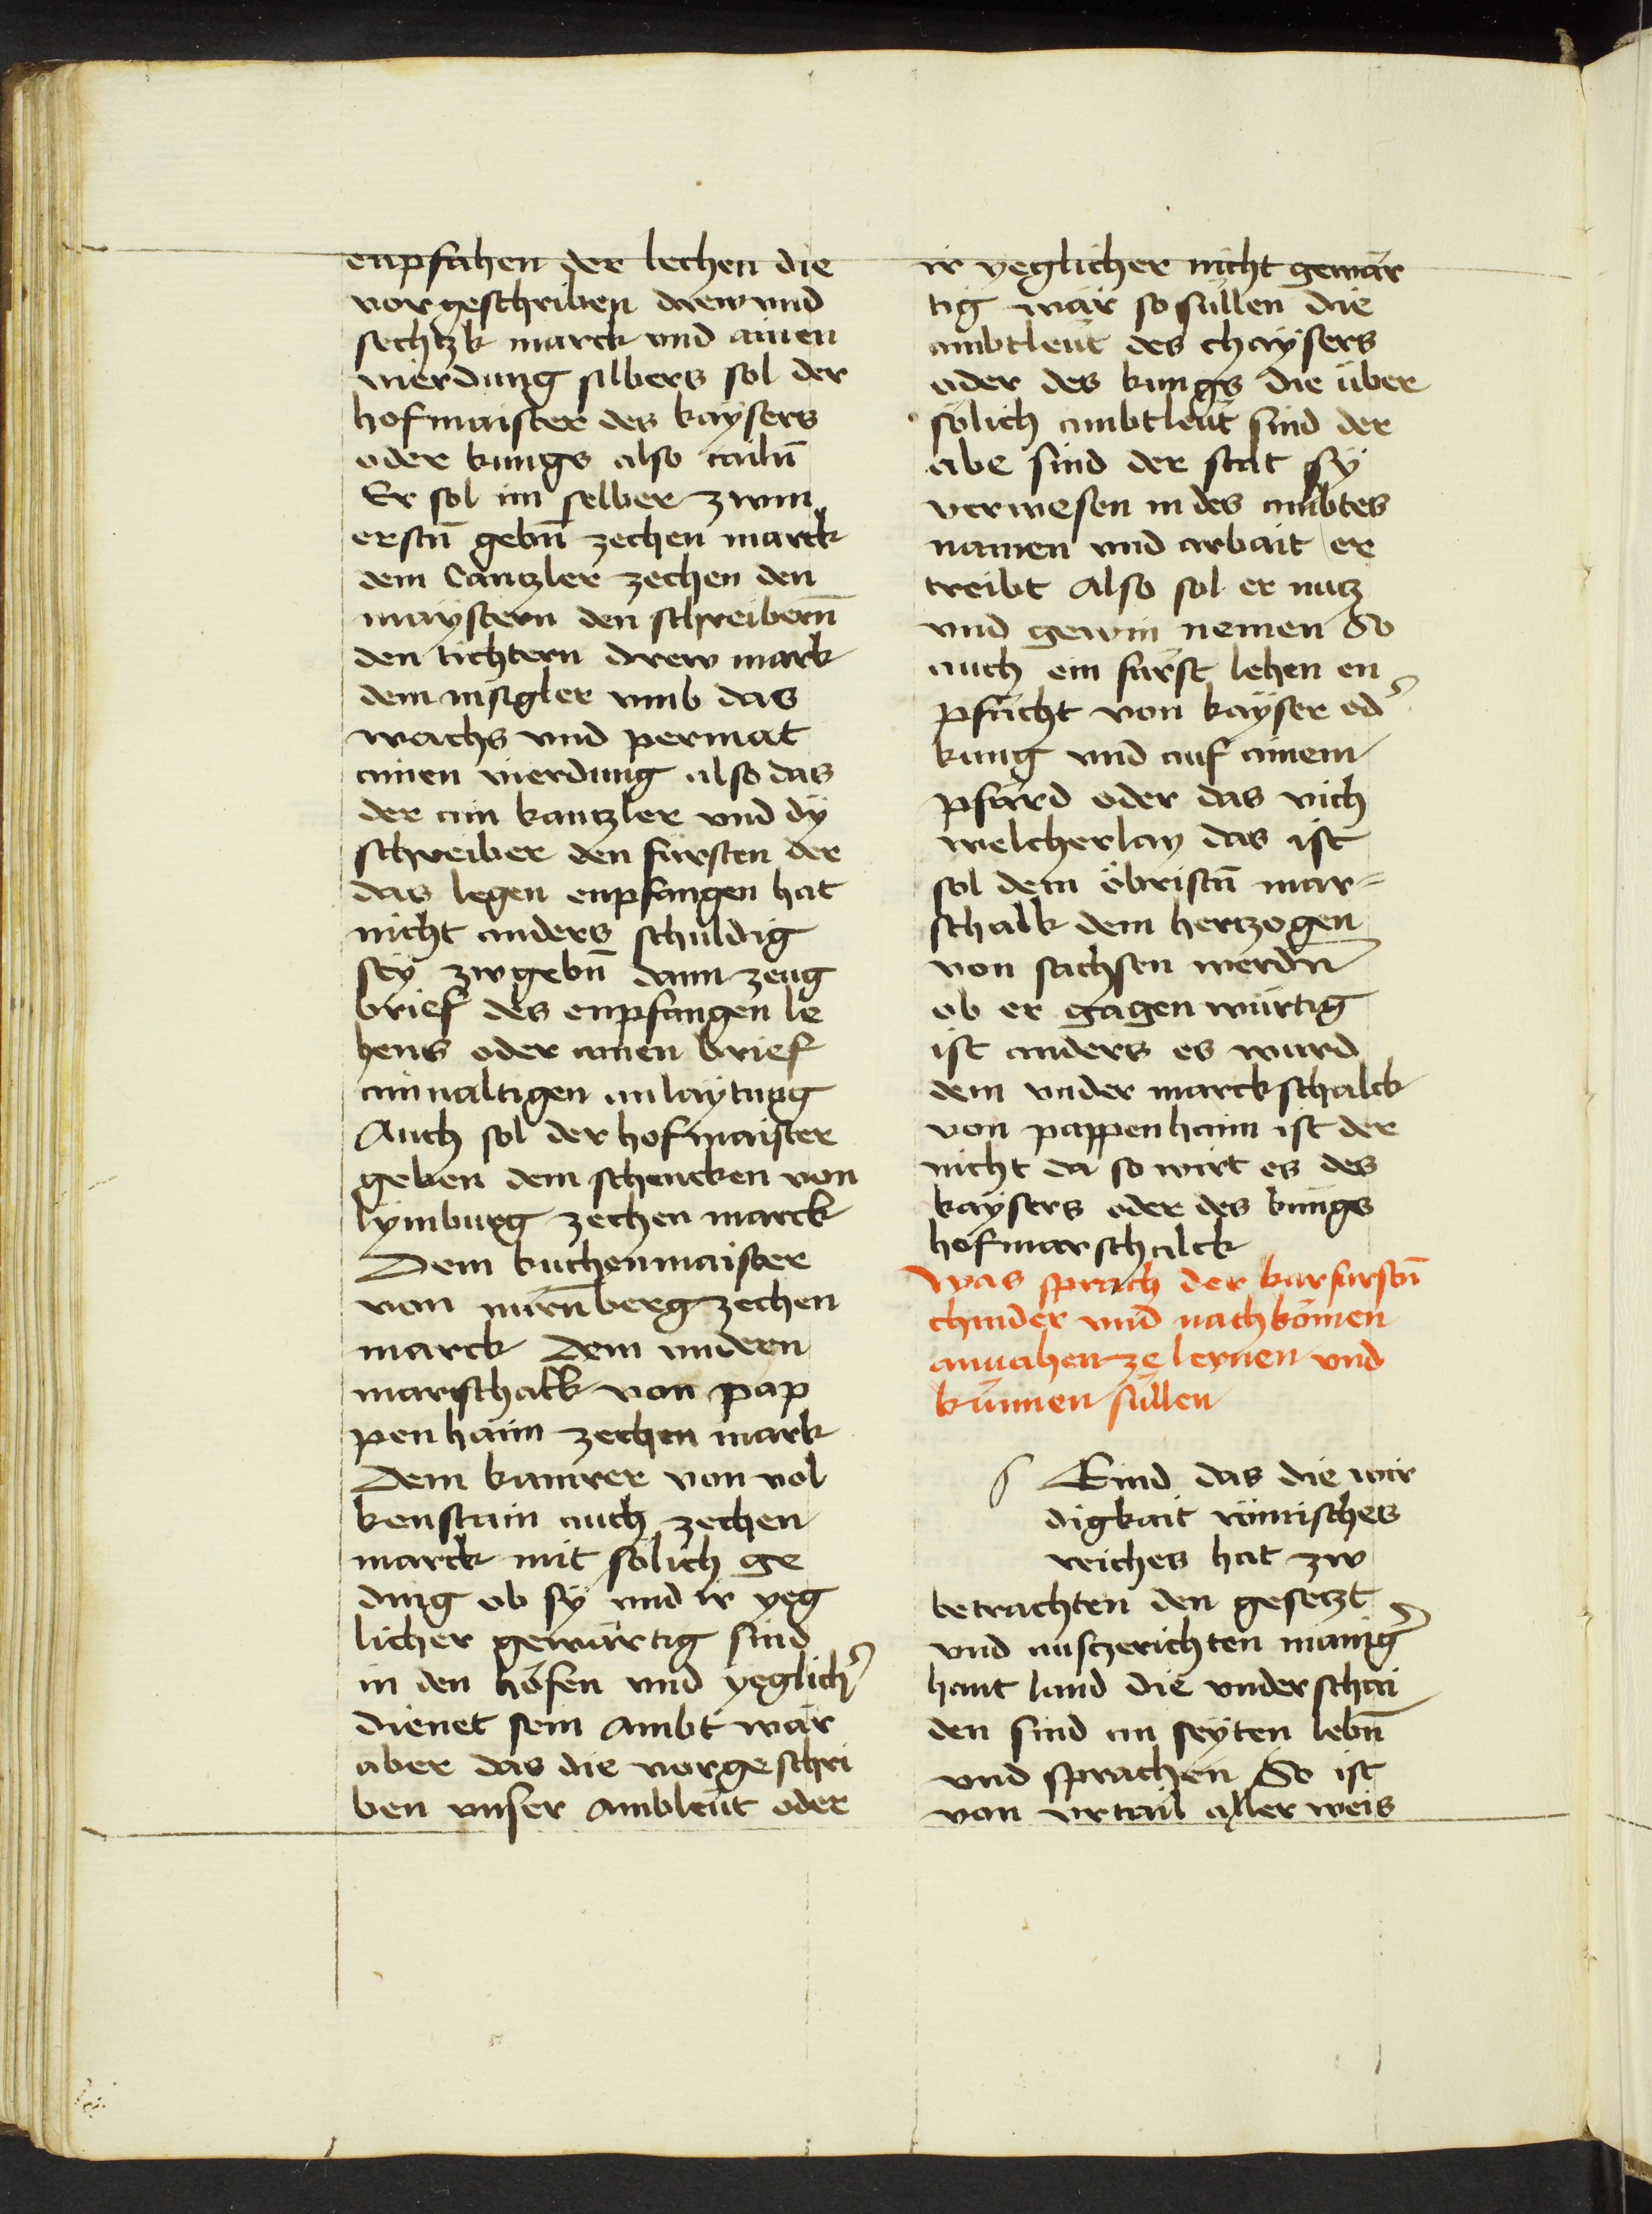 enpfahen der lechen die
vorgeschriben drew vnd
sechtzk marck vnd ainen
vierdung silbers sol der
hofmaister des kaÿsers
oder kungs also tailn̄
Er sol im selber zwm
erstn̄ gebn̄ zechen marck
dem Cantzler zechen den
maÿstern den schreibern̄
den tichtern drew mark
dem insigler vmb das
wachs vnd permat
ainen vierdung also das
der ain kantzler vnd dÿ
schreiber den fürsten der
das legen enpfangen hat
nicht anders schuldig
seÿ zwgebn̄ dann zeug
brief des enpfangen le
hens oder ainen brief
ainualtigen anlaÿtung
Auch sol der hofmaister
geben dem schencken von
lÿmburg zechen marck
Dem kuchenmaister
von nürn̄berg zechen
marck Dem vndern
marschalk von pap
penhaim zechen mark
Dem kamrer von vol
kenstain auch zechen
marck mit sölich ge
ding ob sÿ vnd ir yeg
licher gewärtig sind
in den höfen vnd yeglich͛
dienet sein ambt wär
aber das die vorgeschri
ben vnser ambleüt oder
ir yeglicher nicht gewär
tig wär so süllen die
ambtleüt des chaÿsers
oder des kungs die über
sölich ambtleüt sind der
abe sind der stat sÿ
verwesen in des ambtes
namen vnd arbait er
treibt Also sol er nutz
vnd gewin nemen So
auch ein fürst lehen en
pfächt von kaÿser od͛
kung vnd auf ainem
pfärd oder das vich
welcherlay das ist
sol dem öbristn̄ mar=
schalk dem hertzogen
von sachsen werdn̄
ob er gagen würtig
ist anders es wurd
dem vnder marckschalck
von pappenhaim ist der
nicht da so wirt es des
kaÿsers oder des kungs
hofmarschalck
Was sprach der kurfurstn̄
chinder vnd nachkömen
anuahen ze lernen vnd
künnen süllen
s Eind das die wir
digkait römisches
reiches hat zw
betrachten den gesetzt
vnd ausczerichten manig͛
hant land die vnderschai
den sind an seÿten lebn̄
vnd sprachen So ist
von vrtail aller weis